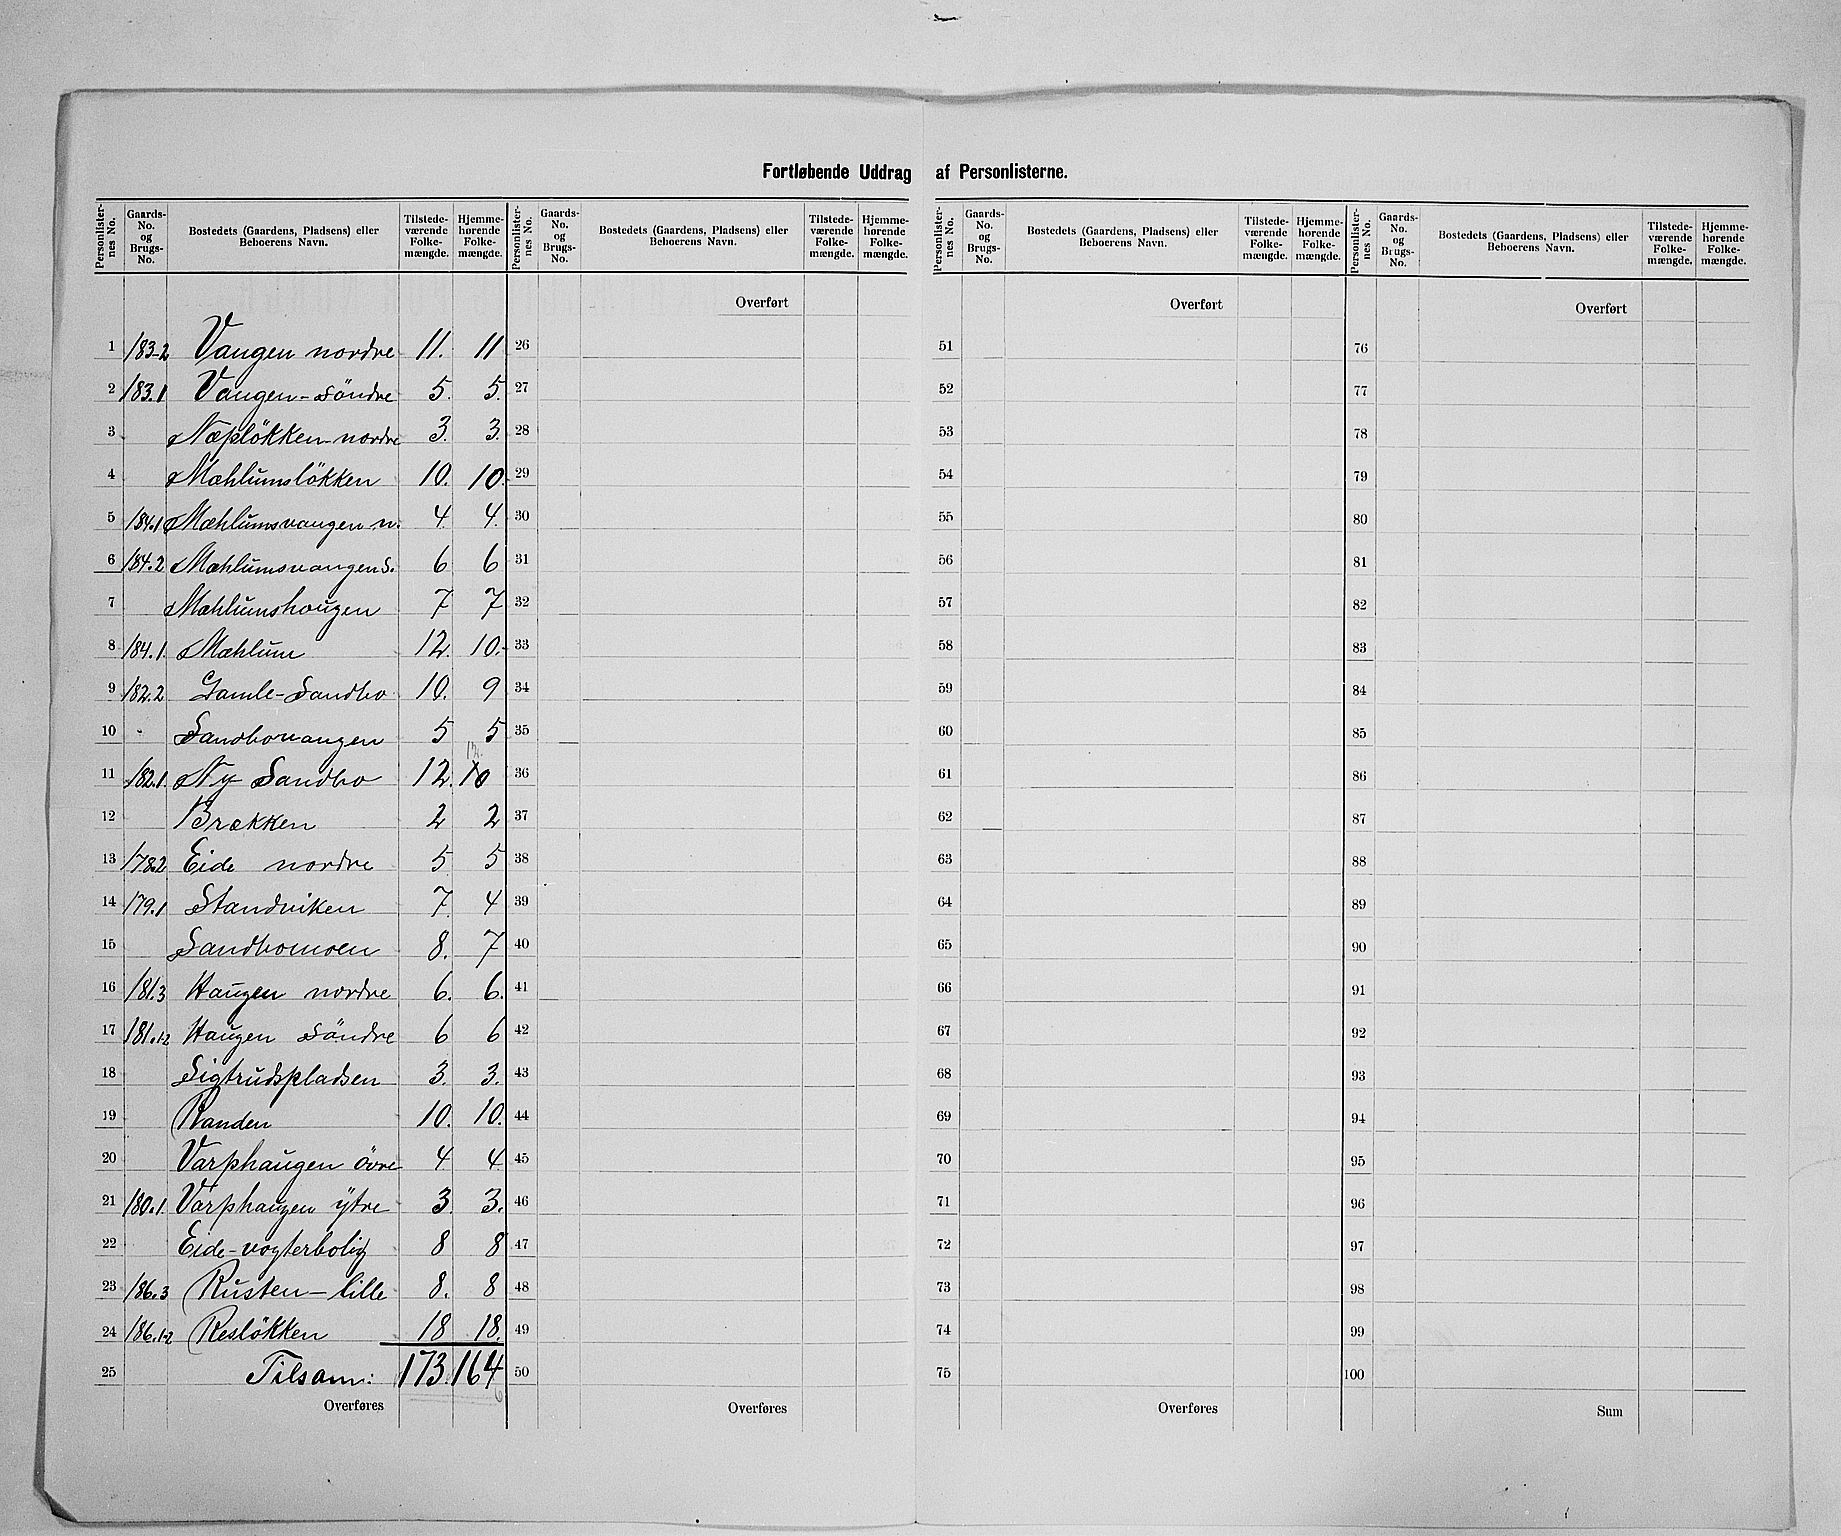 Fortløbende Uddrag af Personlisterne.
Personlister-nes No. | Gaards-No. og Brugs-No. | Bostedets (Gaardens, Pladsens) eller Beboerens Navn. | Tilstede-værende Folke-mængde. | Hjemme-hørende Folke-mængde.
Personlister-nes No. | Gaards-No. og Brugs-No. | Bostedets (Gaardens, Pladsens) eller Beboerens Navn. | Tilstede-værende Folke-mængde. | Hjemme-hørende Folke-mængde.
Personlister-nes No. | Gaards-No. og Brugs-No. | Bostedets (Gaardens, Pladsens) eller Beboerens Navn. | Tilstede-værende Folke-mængde. | Hjemme-hørende Folke-mængde.
Personlister-nes No. | Gaards-No. og Brugs-No. | Bostedets (Gaardens, Pladsens) eller Beboerens Navn. | Tilstede-værende Folke-mængde. | Hjemme-hørende Folke-mængde.
Overført Overført Overført
1 183-2 Vangen nordre 11. 11 26 51 76
2 183.1 Vangen-söndre 5. 5. 27 52 77
3 Næpløkken-nordre 3. 3. 28 53 78
4 Mæhlumsløkken 10. 10. 29 54 79
5 184.1 Mæhlumsvangen n. 4. 4. 30 55 80
6 184.2 Mæhlumsvangen s. 6 6 31 56 81
7 Mæhlumshougen 7 7 32 57 82
8 184.1. Mæhlum 12. 10. 33 58 83
9 182.2 Gamle-Sandbo 10. 9 34 59 84
10 Sandbovangen 5 5 35 60 85
11 182.1. Ny Sandbo 12. 10 36 61 86
12 Brækken 2 2 37 62 87
13 178.2 Eide nordre 5 5 38 63 88
14 179.1 Standviken 7. 4 39 64 89
15 Sandbomoen 8. 7 40 65 90
16 181.3 Haugen nordre 6. 6. 41 66 91
17 181.1-2 Haugen söndre 6 6 42 67 92
18 Sigtrudspladsen 3. 3. 43 68 93
19 Randen 10. 10. 44 69 94
20 Varphaugen övre 4 4 45 70 95
21 180.1. Varphaugen ytre 3. 3. 46 71 96
22 Eide-vogterbolig 8 8 47 72 97
23 186.3 Rusten-lille 8. 8 48 73 98
24 186.1-2 Resløkken 18 18. 49 74 99
25 Tilsam: 173. 164 50 75 100
Overføres Overføres Overføres Sum